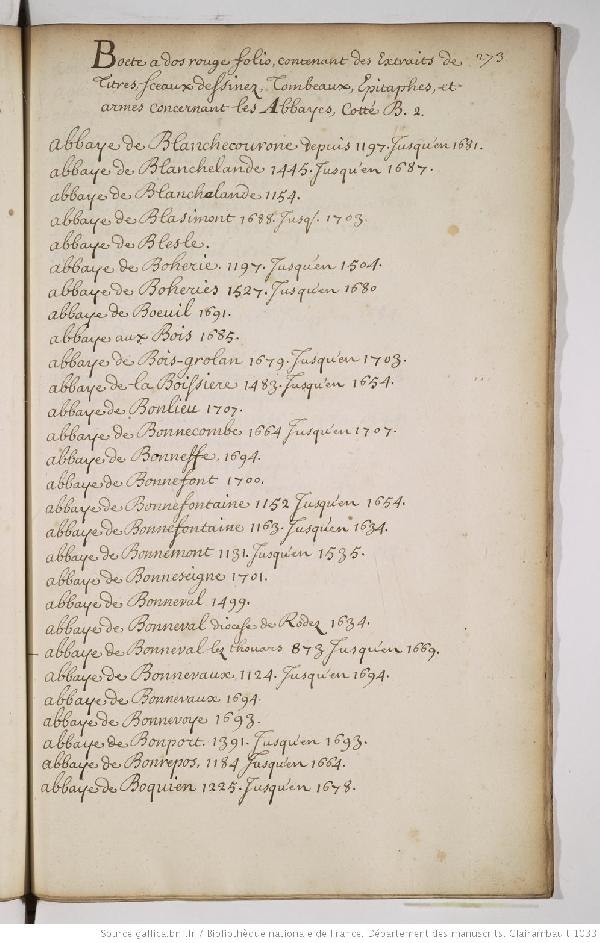 Boete a dos rouge folio, contenant des Extraits de 273
Titres, sceaux dessinez, Tombeaux, Epitaphes, et
armes concernant les Abbayes, Cotté B. 2.
abbaye de Blanchecouronne depuis 1197. Jusqu'en 1631.
abbaye de Blanchelande 1445. Jusqu'en 1687.
abbaye de Blanchalande 1154.
abbaye de Blasimont 1688. Jusq. 1703.
abbaye de Blesle.
abbaye de Boherie. 1197. Jusqu'en 1504.
abbaye de Boheries 1527. Jusqu'en 1680
abbaye de Boeuil 1691.
abbaye aux Bois 1685.
abbaye de Bois-grolan 1679. Jusqu'en 1703.
abbaye de la Boissiere 1483. Jusqu'en 1654.
abbaye de Bonlieu 1707.
abbaye de Bonnecombe 1664 Jusqu'en 1707.
abbaye de Bonneffe, 1694.
abbaye de Bonnefont 1700.
abbaye de Bonnefontaine 1152 Jusqu'en 1654.
abbaye de Bonnefontaine 1163. Jusqu'en 1634.
abbaye de Bonnemont 1131. Jusqu'en 1535.
abbaye de Bonneseigne 1701.
abbaye de Bonneval 1499.
abbaye de Bonneval diocese de Rodez 1634.
abbaye de Bonneval lez thouars 873 Jusqu'en 1669.
abbaye de Bonnevaux 1124. Jusqu'en 1694.
abbaye de Bonnevaux 1694.
abbaye de Bonnevoye 1693.
abbaye de Bonport. 1391. Jusqu'en 1693.
abbaye de Bonrepos, 1184 Jusqu'en 1664.
abbaye de Boquien 1225. Jusqu'en 1678.
Source gallica.bnf.fr / Bibliothèque nationale de France. Département des manuscrits. Clairambault 1033